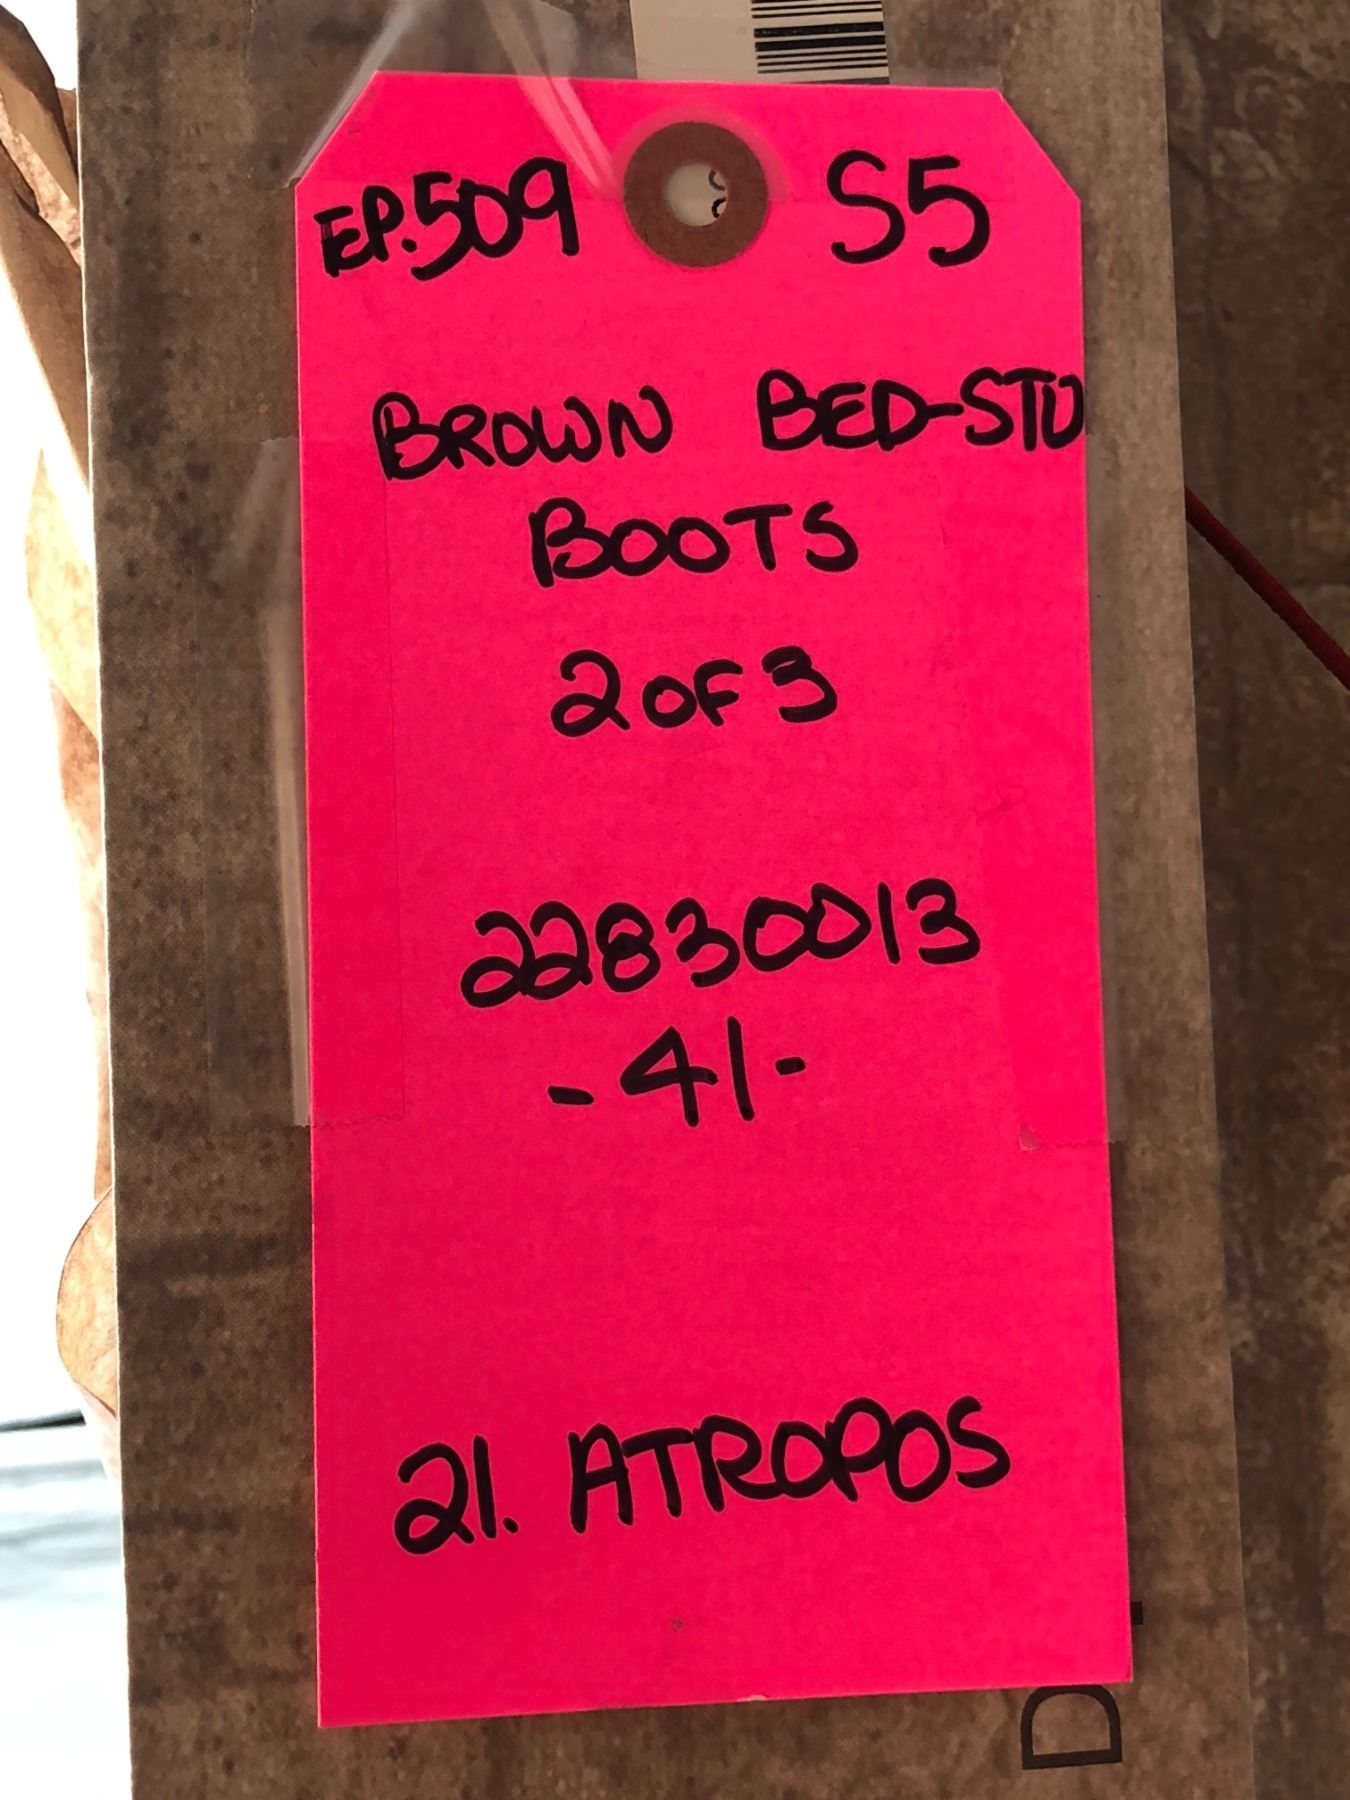 EP.509 S5
BROWN BED-STU
BOOTS
2 OF 3
22830013
-41-
21. ATROPOS
D